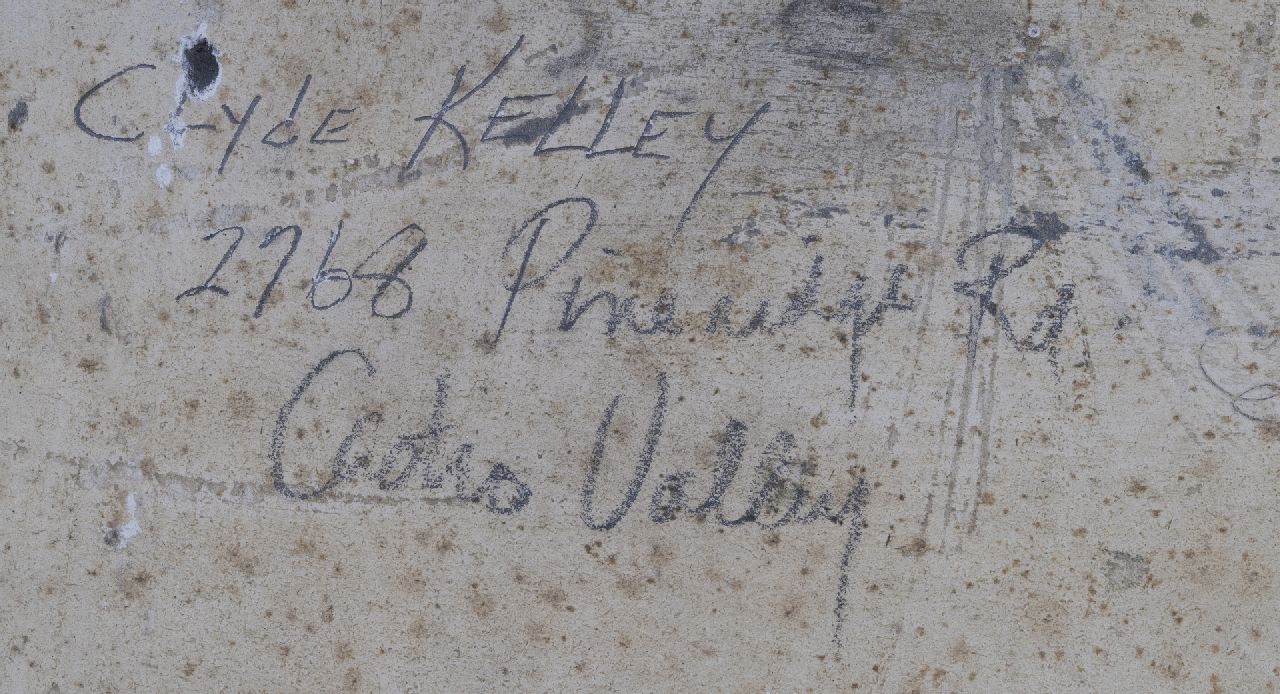 Clyde KELLEY
2768 Pineridge Rd
Castro Valley